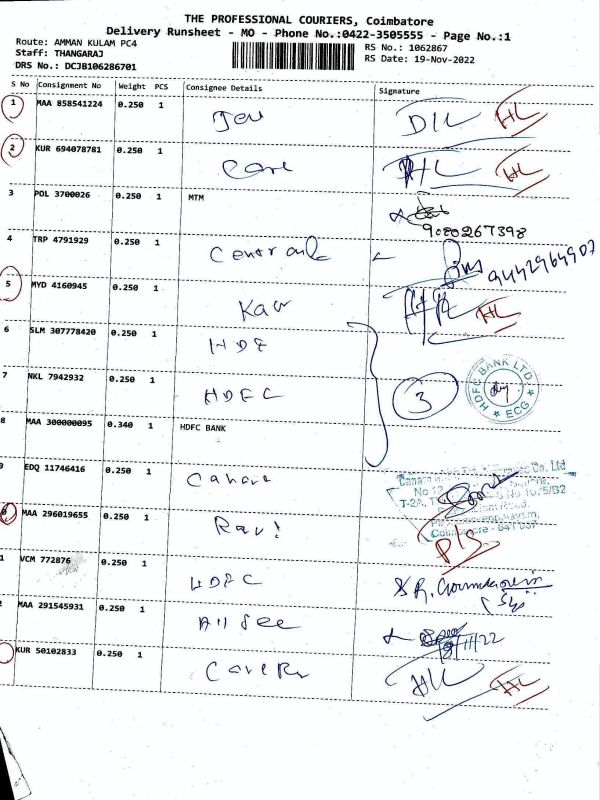 THE PROFESSIONAL COURIERS, Coimbatore
Delivery Runsheet - MO - Phone No.:0422-3505555 - Page No.:1
Route: AMMAN KULAM PC4
RS No.: 1062867
Staff: THANGARAJ
RS Date: 19-Nov-2022
DRS No.: DCJB106286701
S No Consignment No Weight PCS Consignee Details Signature
1 MAA 858541224 0.250 1 DIL HL
2 KUR 694078781 0.250 1 Care HL HL
3 POL 3700026 0.250 1 MTM
9080267398
4 TRP 4791929 0.250 1 9442964907
5 MYD 4160945 0.250 1 Kav HL
6 SLM 307778420 0.250 1 HDF
7 NKL 7942932 0.250 1 HDFC 3 HDFC BANK LTD. ECG
8 MAA 300000095 0.340 1 HDFC BANK
9 EDQ 11746416 0.250 1 Canara Co. Ltd
MAA 296019655 0.250 1 Ravi
VCM 772876 0.250 1 HDFC
MAA 291545931 0.250 1 All See /11/22
KUR 50102833 0.250 1 HL HL